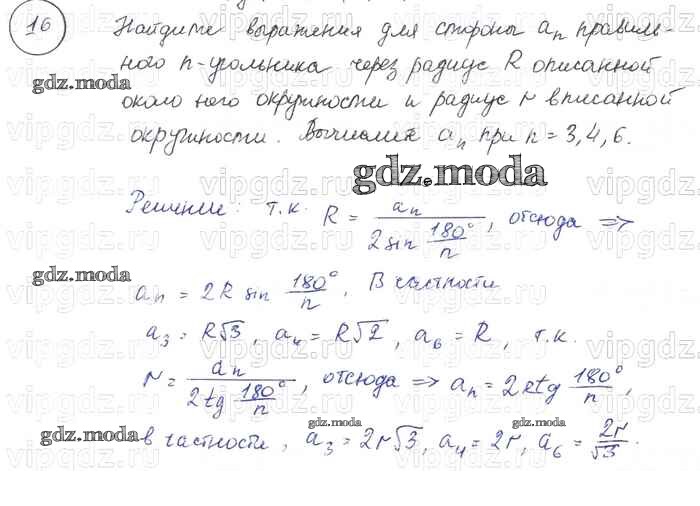 16 Найдите выражения для стороны aₙ правиль-
ного n-угольника через радиус R описанной
около него окружности и радиус r вписанной
окружности. Вычислите aₙ при n = 3, 4, 6.
gdz.moda
gdz.moda
Решение: т.к. R = aₙ / (2 sin 180°/n), отсюда ⇒
gdz.moda
aₙ = 2R sin 180°/n. В частности
a₃ = R√3, a₄ = R√2, a₆ = R, т.к.
r = aₙ / (2 tg 180°/n), отсюда ⇒ aₙ = 2r tg 180°/n,
gdz.moda gdz.moda gdz.moda
в частности, a₃ = 2r√3, a₄ = 2r, a₆ = 2r/√3.
vipgdz.ru